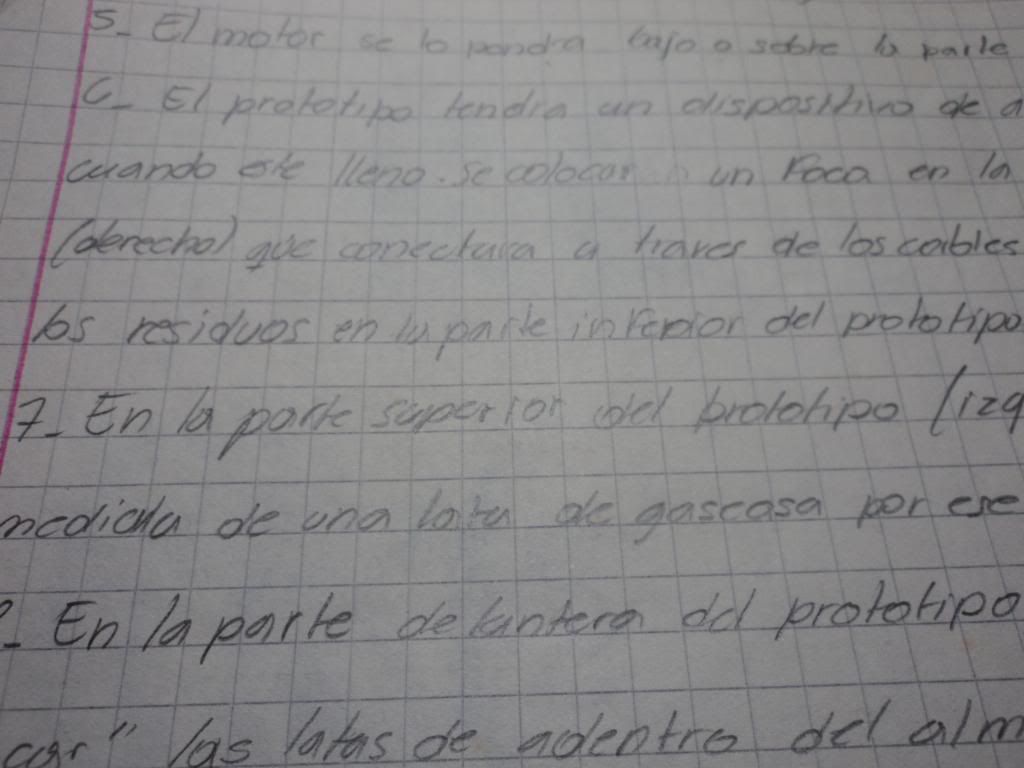 5- El motor se lo pondra bajo o sobre la parte
6- El prototipo tendra un dispositivo de a
cuando este lleno. se colocar un Foco en la
(derecho) que conectara a traves de los cables
los residuos en la parte inferior del prototipo
7- En la parte superior del prototipo (izq
mediada de una lata de gaseosa por ese
- En la parte delantera del prototipo
car" las latas de adentro del alm